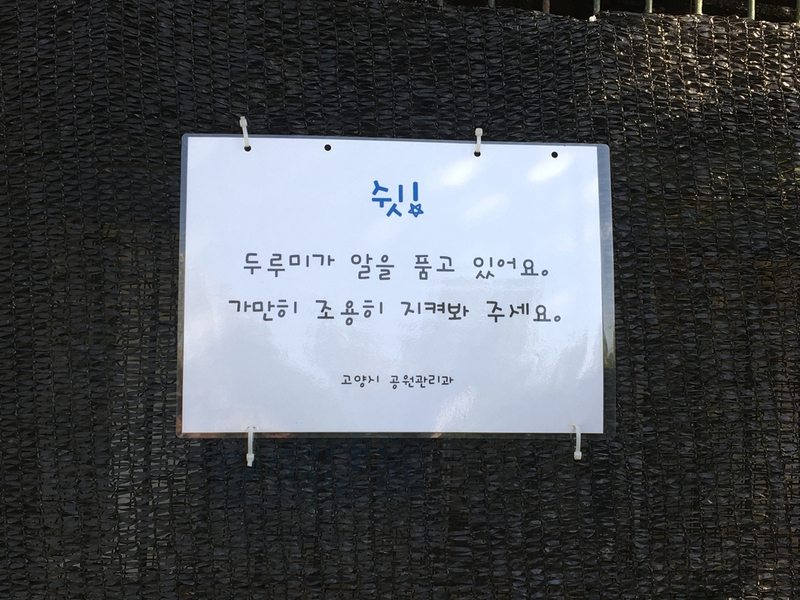 쉿!
두루미가 알을 품고 있어요.
가만히 조용히 지켜봐 주세요.
고양시 공원관리과